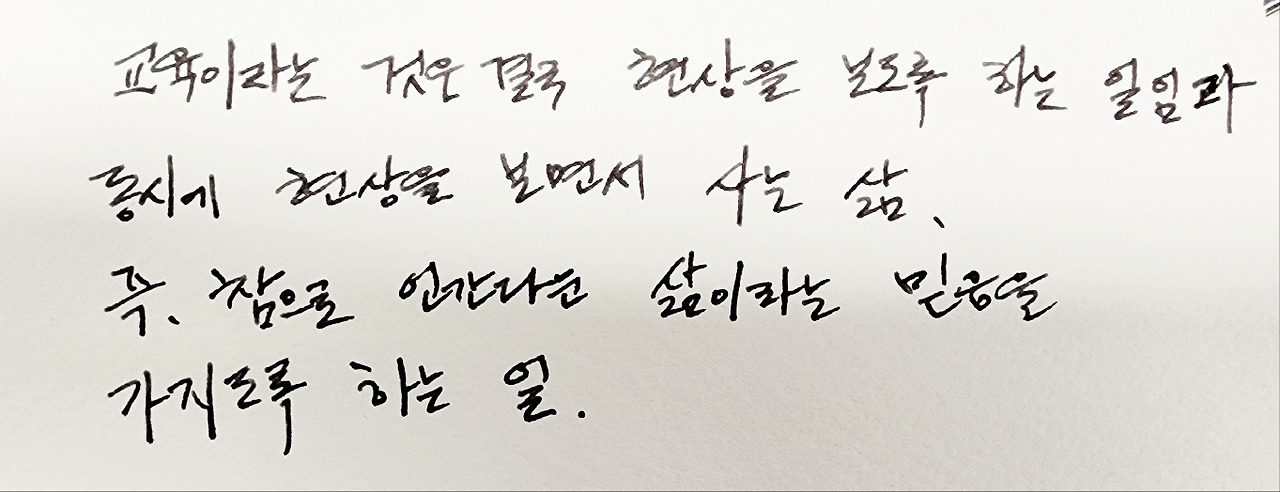 교육이라는 것은 결국 현상을 보도록 하는 일임과
동시에 현상을 보면서 사는 삶、
즉, 참으로 인간다운 삶이라는 믿음을
가지도록 하는 일.